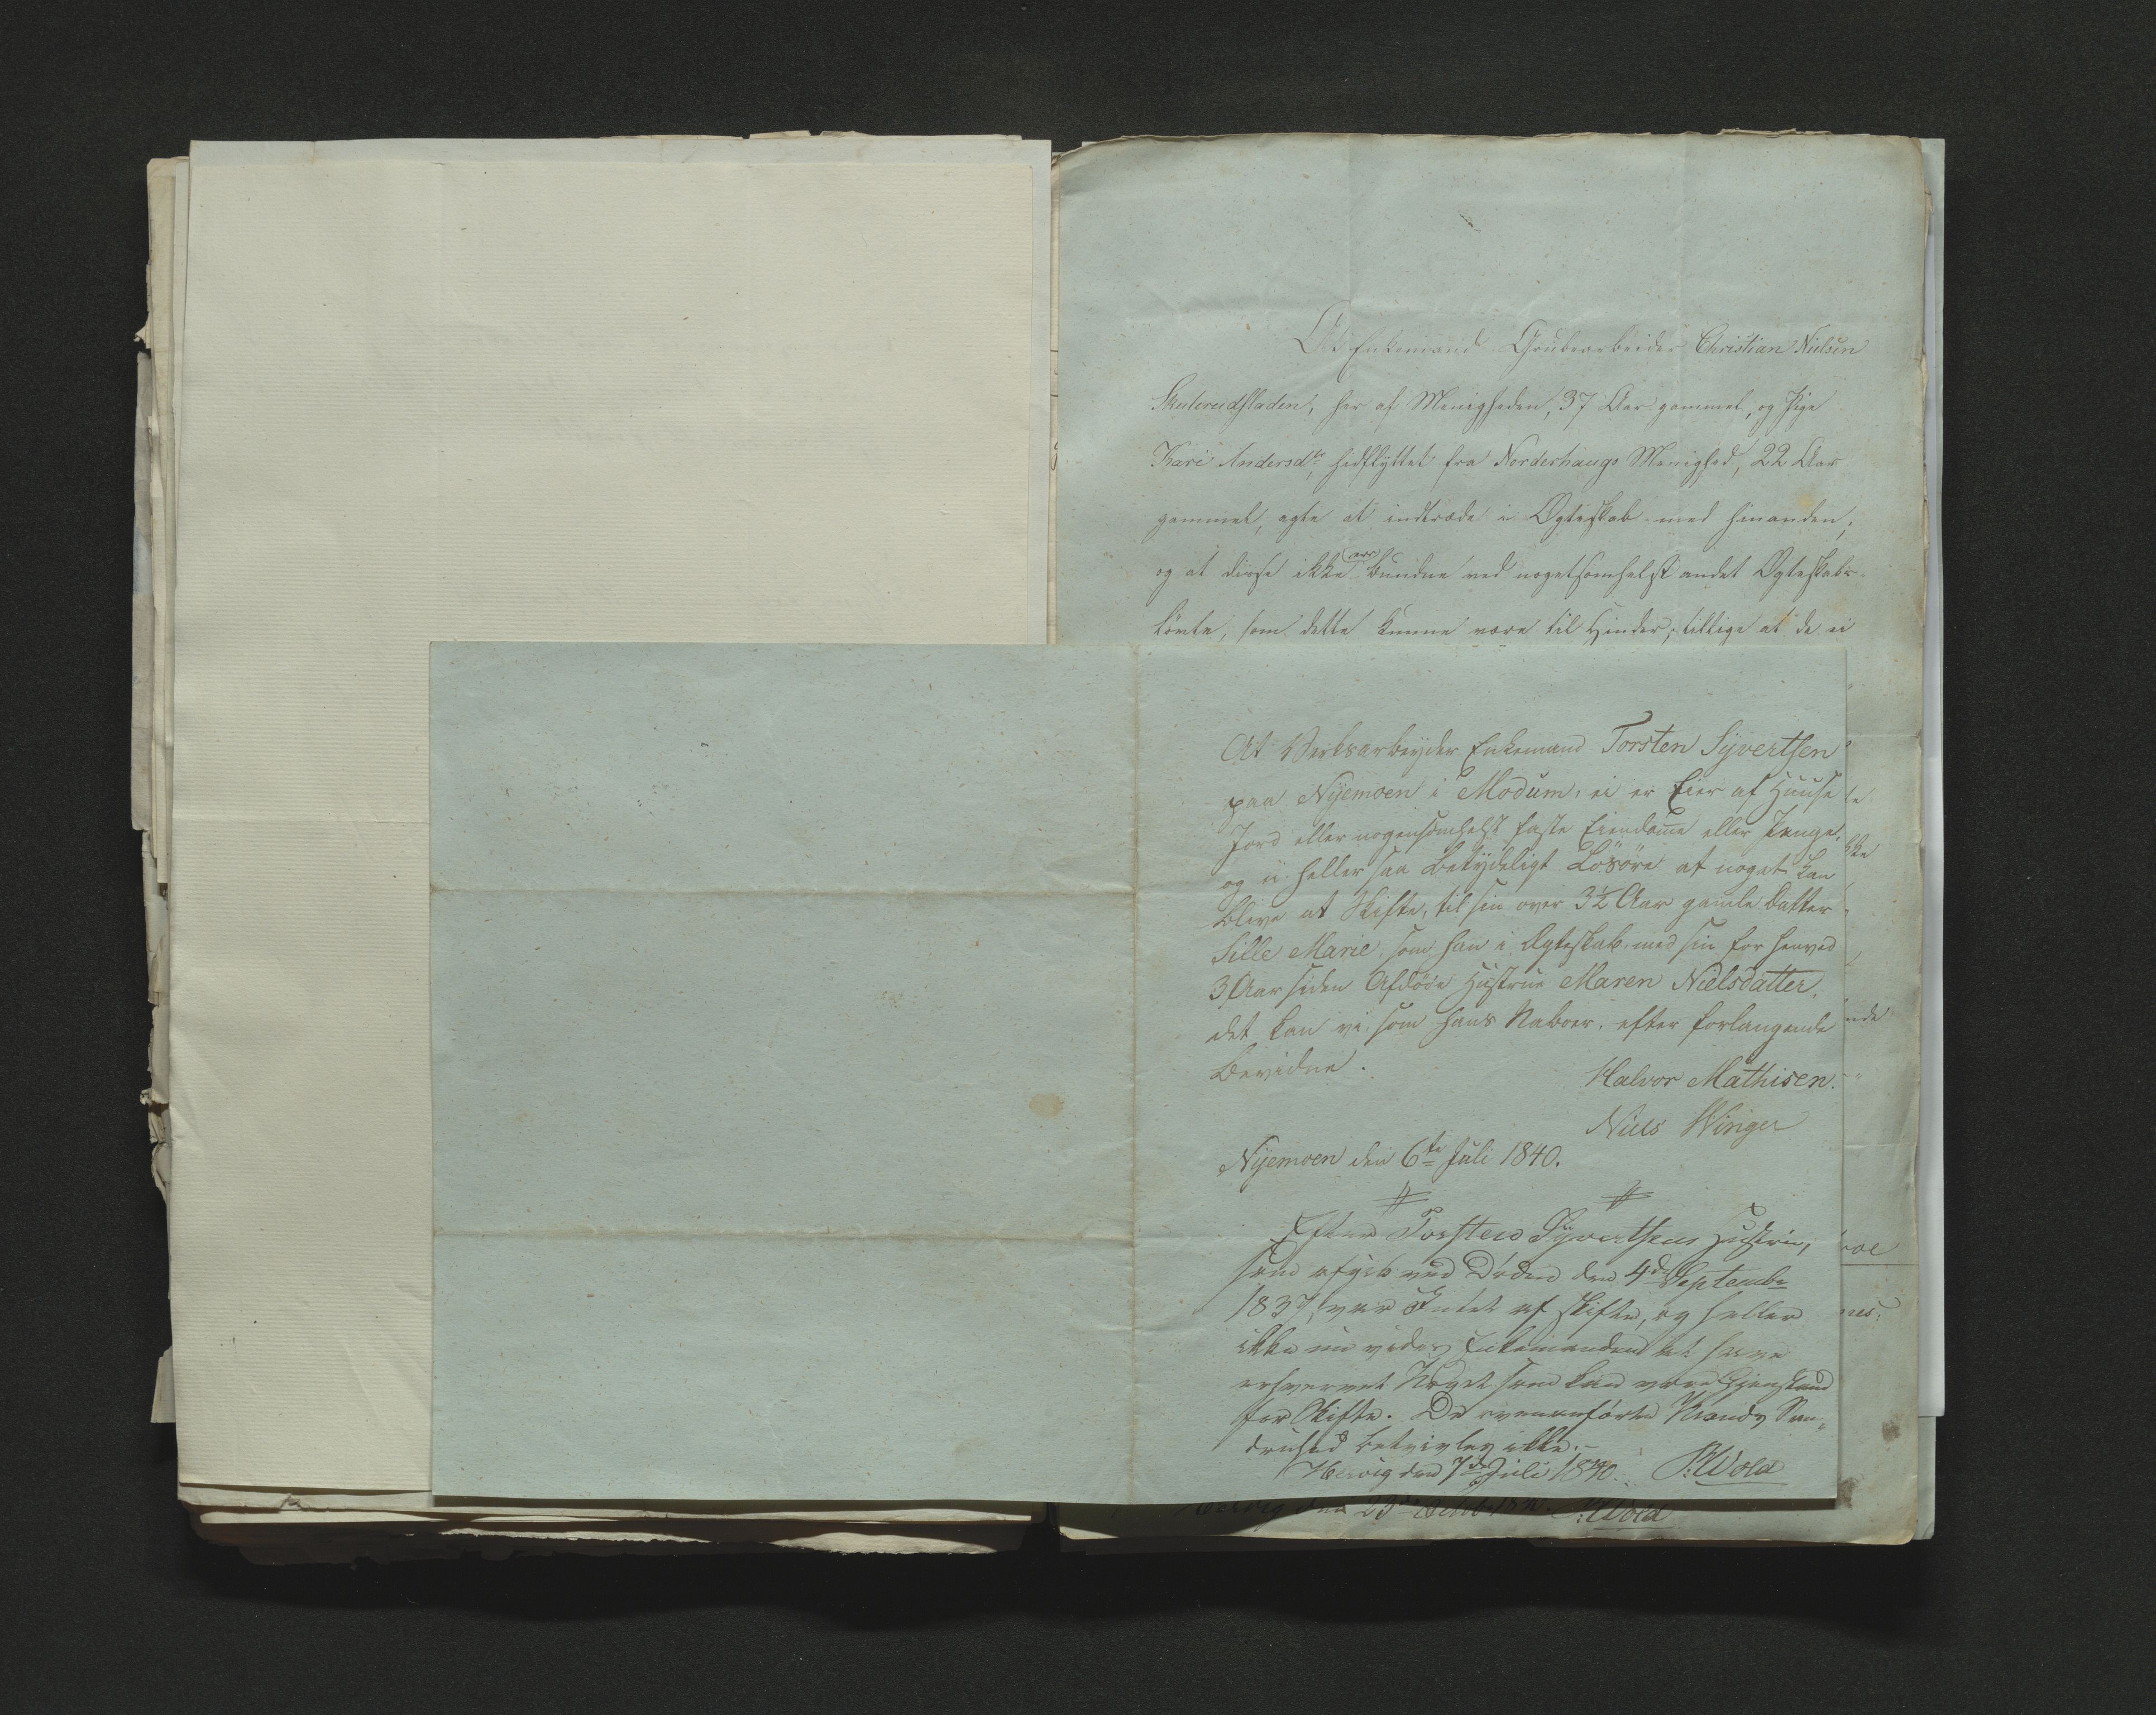 At Enkemand Grubearbeider Christian Nielsen
Skuterudfladen, her af Menigheden, 37 Aar gammel, og Pige
Kari Andersdtr, hidflyttet fra Norderhaugs Menighed, 22 Aar
gammel, agte at indtræde i Ægteskab med hinanden,
og at disse ikke ere bundne ved nogetsomhelst andet Ægteskabs-
Løvte, som dette kunne være til Hinder, tillige at de ei
At Værksarbeyder Enkemand Torsten Syvertsen
paa Nyemoen i Modum, ei er Eier af Huuse
Jord eller nogensomhelst faste Eiendome eller Penge,
og ei heller saa betydeligt Lösöre at noget kan
blive at Skifte, til sin over 3½ Aar gamle Datter
Sille Marie, som han i Ægteskab med sin for henved
3 Aar siden Afdøde Hustrue Maren Nielsdatter.
det kan vi som hans Naboer, efter forlangende
bevidne.
Halvor Mathisen.
Niels Winger
Nyemoen den 6te Juli 1840.
Efter Torsten Syvertsens Hustru,
som afgik ved Døden den 4de Septembr
1837, var Intet af skifte, og heller
ikke nu vides Enkemanden at have
erhvervet Noget som kan være Gjenstand
for Skifte. De ovenanførte Mænds San-
druhed betvivles ikke.-
Hervig den 7de Juli 1840. P. Wold
den 23de Octob 1840. P. Wold